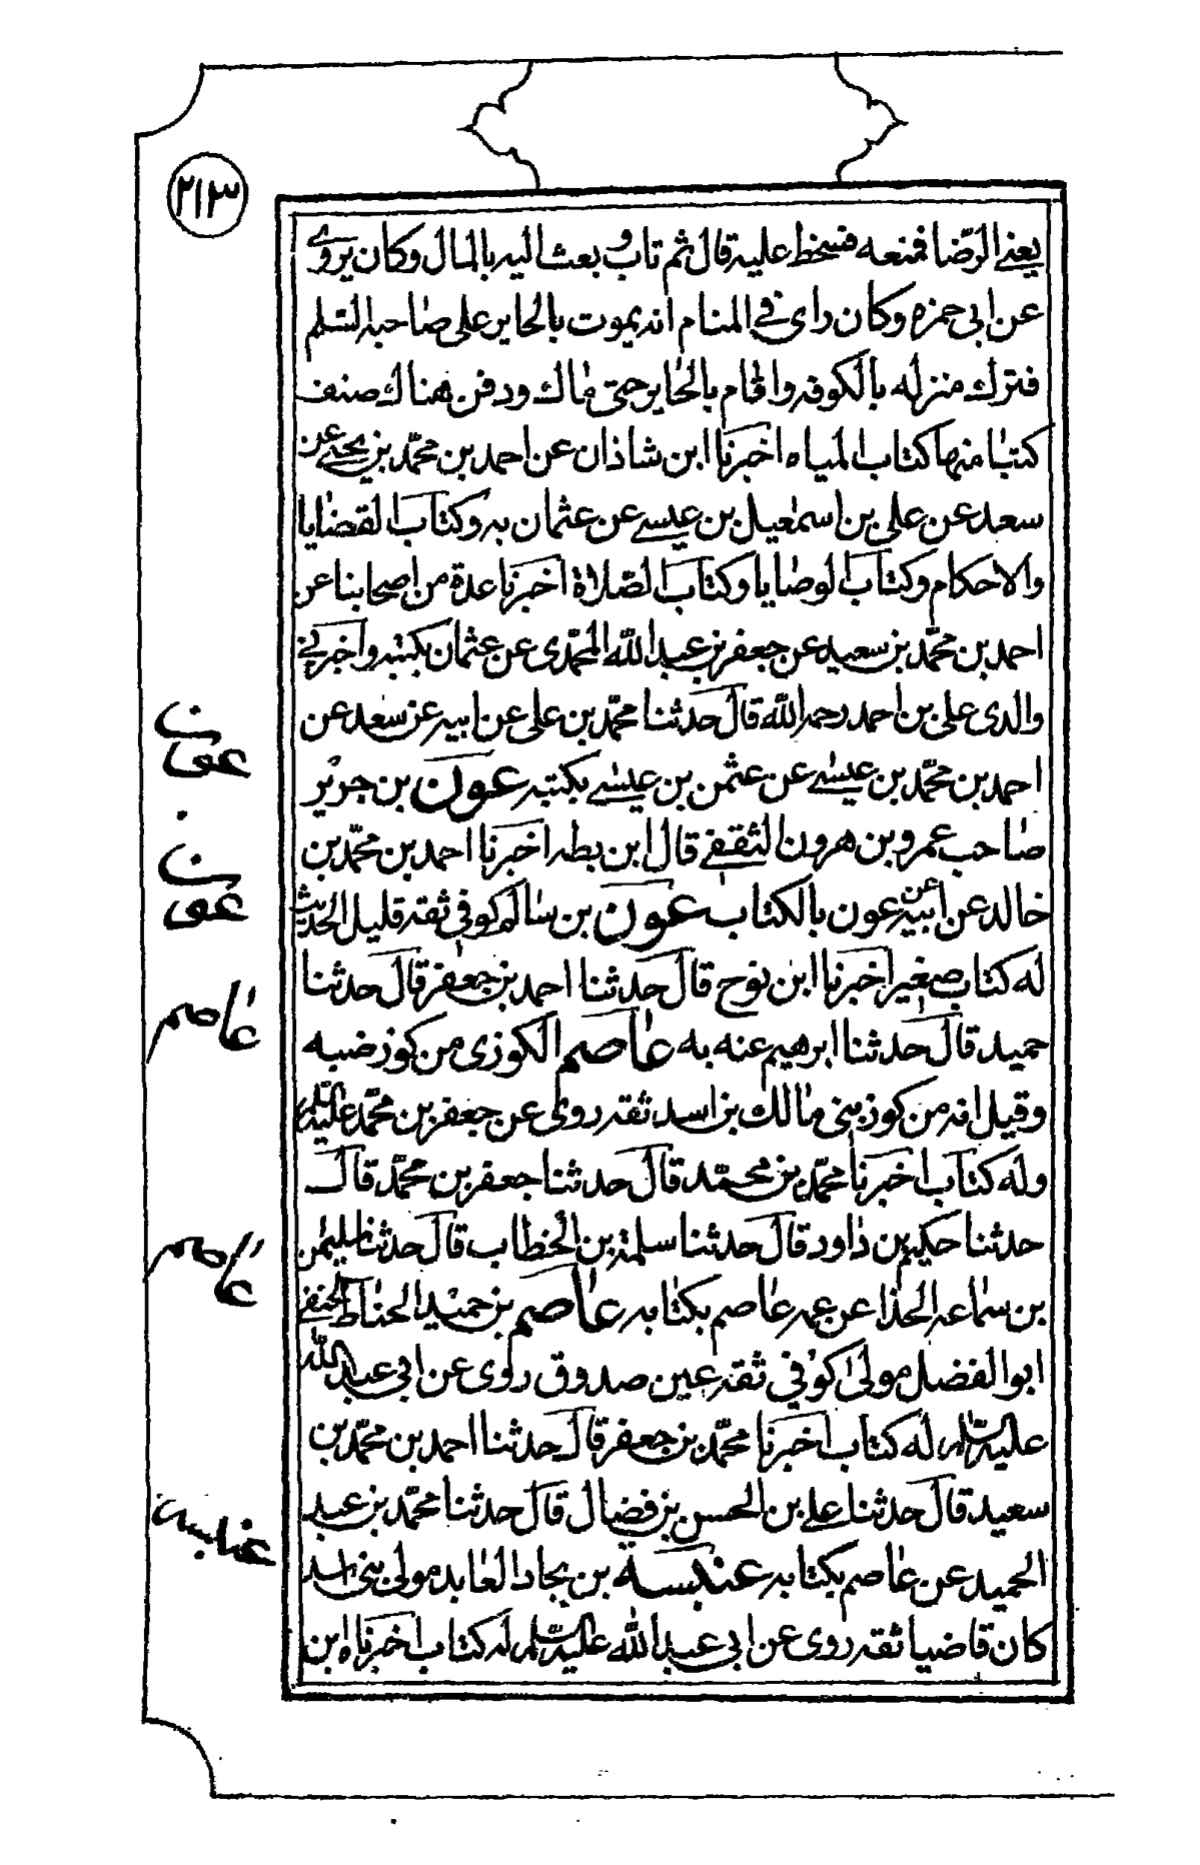 ٢١٣
يعنے الرّضا فمنعه فسخط عليه قال ثم تاب و بعث اليه بالمال وكان يروے
عن ابى حمزه وكان راى في المنام انه يموت بالحاير على صاحبه السّلم
فترك منزله بالكوفه واقام بالحاير حتى مات ودفن هناك صنف
كتبا منها كتاب المياه اخبرنا ابن شاذان عن احمد بن محمّد بن يحيے عن
سعد عن على بن اسمعيل بن عيسے عن عثمان به وكتاب القضايا
والاحكام وكتاب الوصايا وكتاب الصّلاة اخبرنا عدة من اصحابنا عن
احمد بن محمّد بن سعيد عن جعفر بن عبد اللّه المحمّدى عن عثمان بكتبه واخبرني
والدى على بن احمد رحمه اللّه قال حدثنا محمّد بن على عن ابيه عن سعد عن
احمد بن محمّد بن عيسے عن عثمن بن عيسے بكتبه عون بن جرير
صاحب عمرو بن هرون الثقفے قال ابن بطه اخبرنا احمد بن محمّد بن
خالد عن ابيه عن عون بالكتاب عون بن سالم كوفي ثقه قليل الحديث
له كتاب صغير اخبرنا ابن نوح قال حدثنا احمد بن جعفر قال حدثنا
حميد قال حدثنا ابرهيم عنه به عاصم الكوزى من كوز ضبه
وقيل انه من كوز بنى مالك بن اسد ثقه روى عن جعفر بن محمّد عليه السّلم
وله كتاب اخبرنا محمّد بن محمّد قال حدثنا جعفر بن محمّد قال
حدثنا حكيم بن داود قال حدثنا سلمة بن الخطاب قال حدثنا سليمن
بن سماعه الحذا عن عمه عاصم بكتابه عاصم بن حميد الحناط الحنفے
ابو الفضل مولى كوفي ثقه عين صدوق روى عن ابى عبد اللّه
عليه السّلم له كتاب اخبرنا محمّد بن جعفر قال حدثنا احمد بن محمّد بن
سعيد قال حدثنا علے بن الحسن بن فضال قال حدثنا محمّد بن عبد
الحميد عن عاصم بكتابه عنبسه بن بجاد العابد مولى بنى اسد
كان قاضيا ثقه روى عن ابى عبد اللّه عليه السّلم له كتاب اخبرناه ابن
عون
عون
عاصم
عاصم
عنبسه